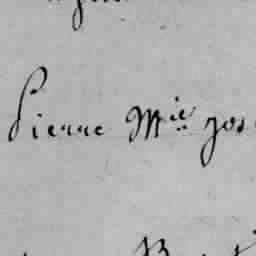 Pierre M.ie jos